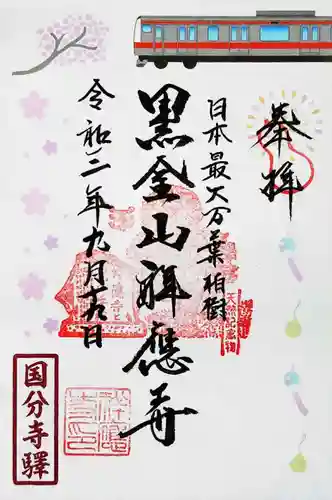 奉拝
日本最大万葉柏樹
天然記念物
黒金山祥應寺
令和二年九月十九日
国分寺驛